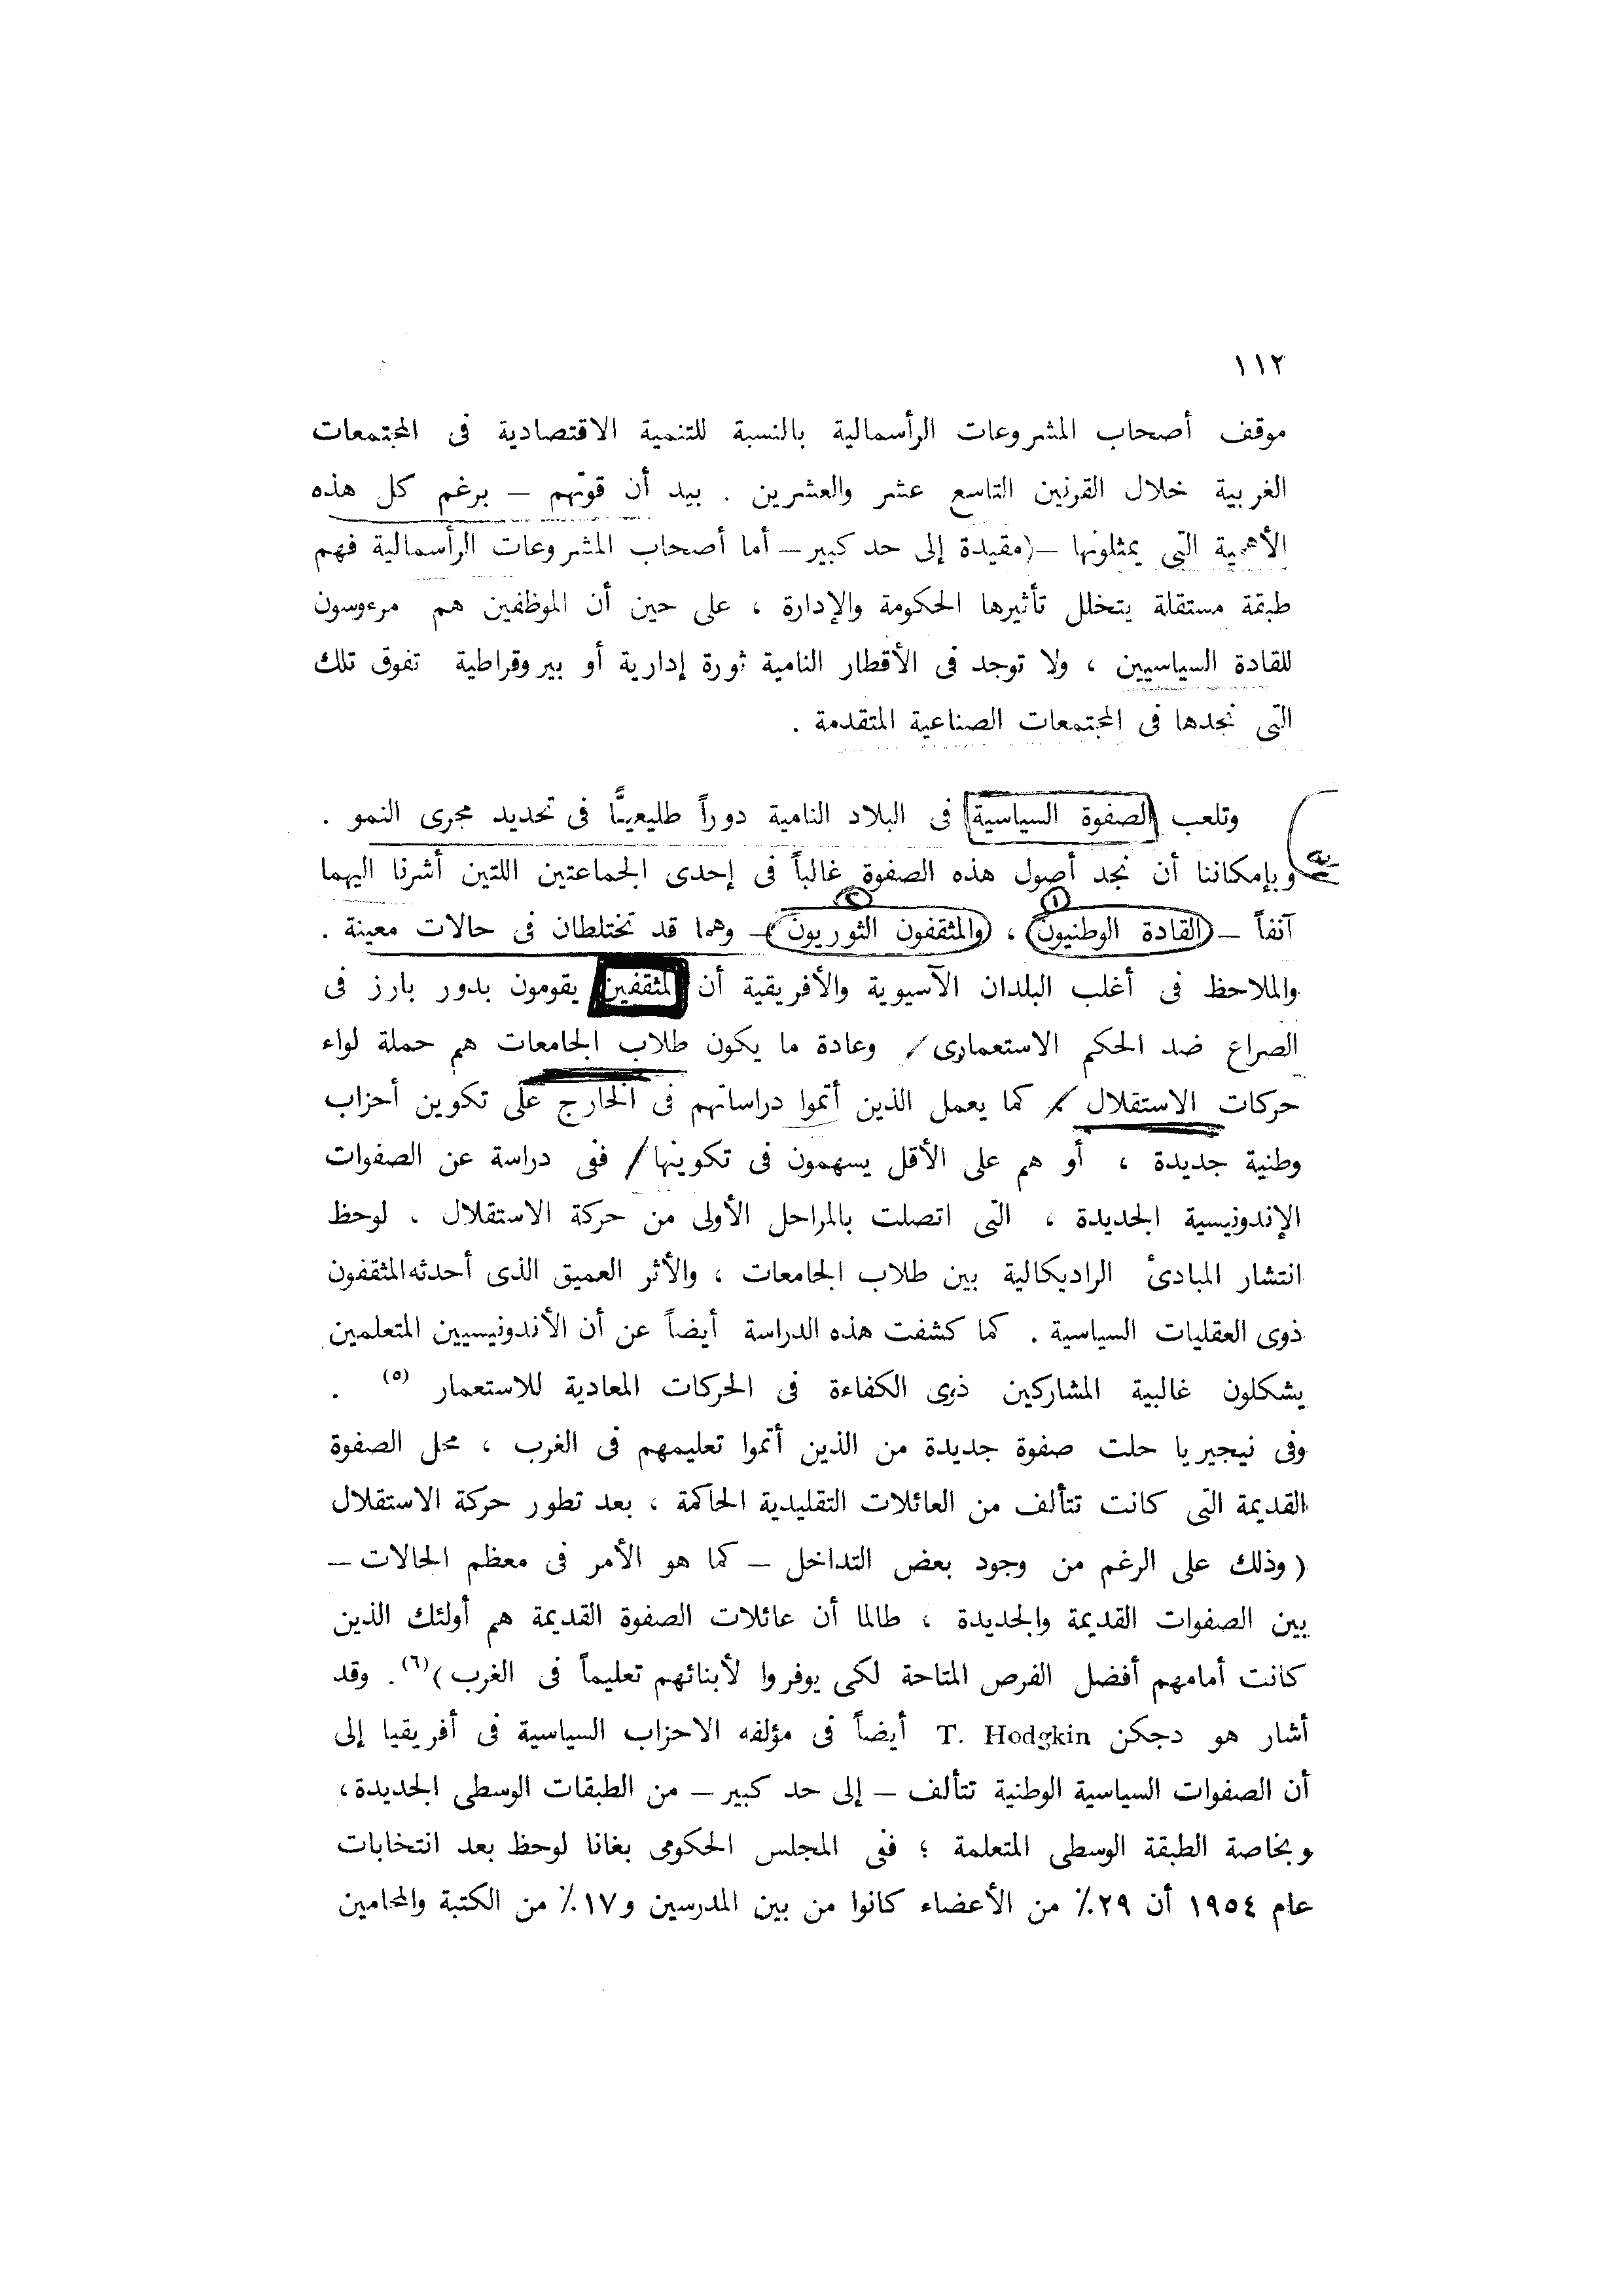 ١١٢
موقف أصحاب المشروعات الرأسمالية بالنسبة للتنمية الاقتصادية فى المجتمعات
الغربية خلال القرنين التاسع عشر والعشرين . بيد أن قوتهم – برغم كل هذه
الأهمية التى يمثلونها – (مقيدة إلى حد كبير – أما أصحاب المشروعات الرأسمالية فهم
طبقة مستقلة يتخلل تأثيرها الحكومة والإدارة ، على حين أن الموظفين هم مرءوسون
للقادة السياسيين ، ولا توجد فى الأقطار النامية ثورة إدارية أو بيروقراطية تفوق تلك
التى نجدها فى المجتمعات الصناعية المتقدمة .
وتلعب الصفوة السياسية فى البلاد النامية دوراً طليعيًّا فى تحديد مجرى النمو .
وبإمكاننا أن نجد أصول هذه الصفوة غالباً فى إحدى الجماعتين اللتين أشرنا اليهما
آنفاً – القادة الوطنيون ، والمثقفون الثوريون – وهما قد تختلطان فى حالات معينة .
والملاحظ فى أغلب البلدان الآسيوية والأفريقية أن المثقفين يقومون بدور بارز فى
الصراع ضد الحكم الاستعمارى / وعادة ما يكون طلاب الجامعات هم حملة لواء
حركات الاستقلال / كما يعمل الذين أتموا دراساتهم فى الخارج على تكوين أحزاب
وطنية جديدة ، أو هم على الأقل يسهمون فى تكوينها / ففى دراسة عن الصفوات
الإندونيسية الجديدة ، التى اتصلت بالمراحل الأولى من حركة الاستقلال ، لوحظ
انتشار المبادئ الراديكالية بين طلاب الجامعات ، والأثر العميق الذى أحدثه المثقفون
ذوى العقليات السياسية . كما كشفت هذه الدراسة أيضاً عن أن الأندونيسيين المتعلمين
يشكلون غالبية المشاركين ذوى الكفاءة فى الحركات المعادية للاستعمار (٥) .
وفى نيجيريا حلت صفوة جديدة من الذين أتموا تعليمهم فى الغرب ، محل الصفوة
القديمة التى كانت تتألف من العائلات التقليدية الحاكمة ، بعد تطور حركة الاستقلال
( وذلك على الرغم من وجود بعض التداخل – كما هو الأمر فى معظم الحالات –
بين الصفوات القديمة والجديدة ، طالما أن عائلات الصفوة القديمة هم أولئك الذين
كانت أمامهم أفضل الفرص المتاحة لكى يوفروا لأبنائهم تعليماً فى الغرب )(٦) . وقد
أشار هو دجكن T. Hodgkin أيضاً فى مؤلفه الاحزاب السياسية فى أفريقيا إلى
أن الصفوات السياسية الوطنية تتألف – إلى حد كبير – من الطبقات الوسطى الجديدة ،
وبخاصة الطبقة الوسطى المتعلمة ؛ ففى المجلس الحكومى بغانا لوحظ بعد انتخابات
عام ١٩٥٤ أن ٢٩٪ من الأعضاء كانوا من بين المدرسين و١٧٪ من الكتبة والمحامين